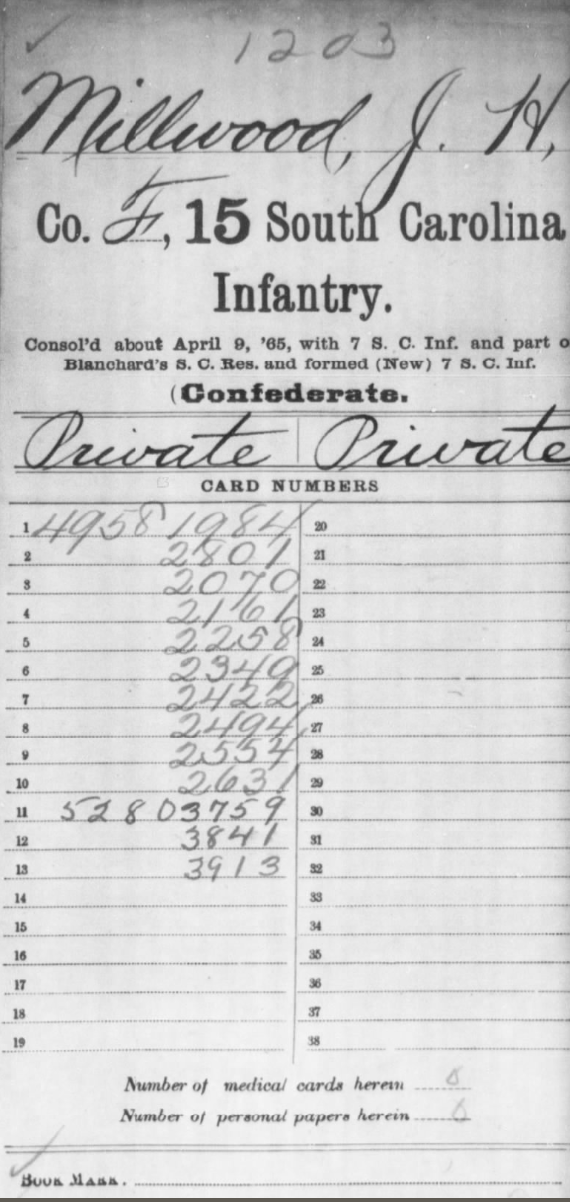 1203
Millwood, J. H.
Co. F, 15 South Carolina
Infantry.
Consol'd about April 9, '65, with 7 S. C. Inf. and part o
Blanchard's S. C. Res. and formed (New) 7 S. C. Inf.
(Confederate.
Private Private
CARD NUMBERS
1 49581984 20
2 2801 21
3 2070 22
4 2161 23
5 2258 24
6 2349 25
7 2422 26
8 2494 27
9 2554 28
10 2631 29
11 52803759 30
12 3841 31
13 3913 32
14 33
15 34
16 35
17 36
18 37
19 38
Number of medical cards herein 0
Number of personal papers herein 0
BOOK MARK.